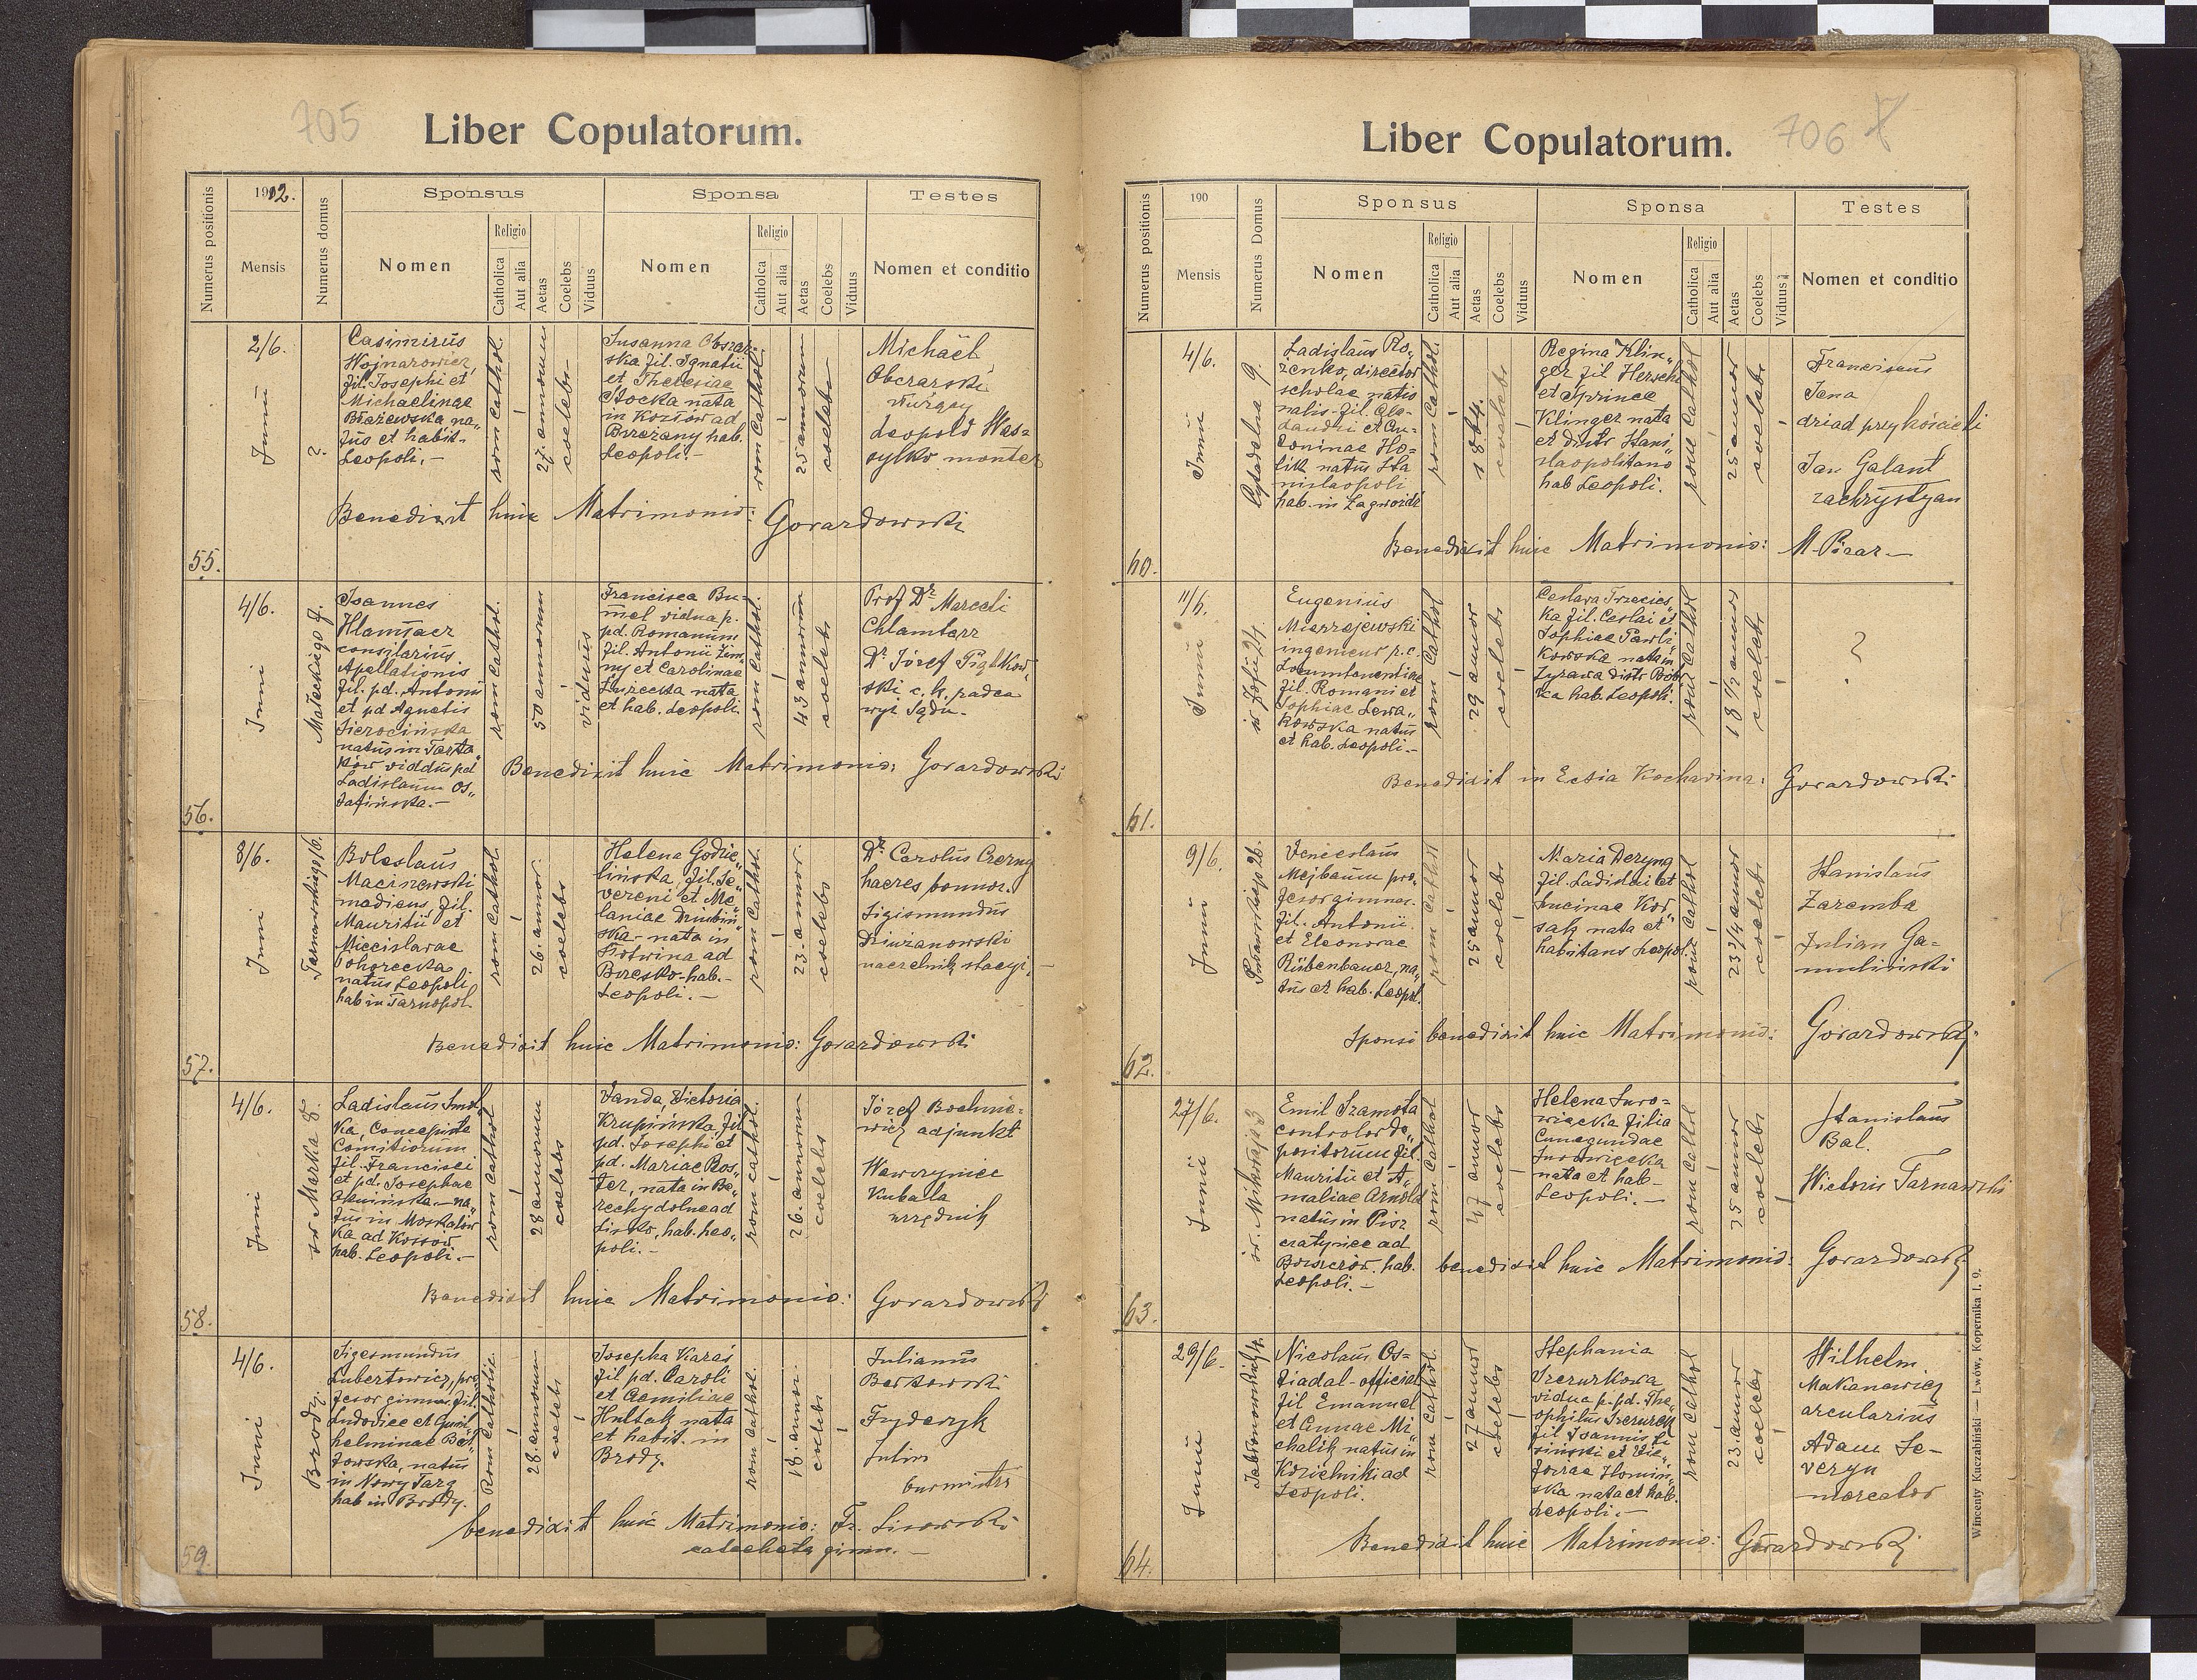 705
Liber Copulatorum.
Numerus positionis
1912.
Mensis
Numerus domus
Sponsus
Nomen
Religio
Catholica
Aut alia
Aetas
Coelebs
Viduus
Sponsa
Nomen
Religio
Catholca
Aut alia
Aetas
Coelebs
Viduus
Testes
Nomen et conditio
55.
2/6.
Junii
?
Casimirus
Wojnarowicz,
fil. Josephi et
Michaelinae
Brzezewska na„
tus et habit-
Leopoli.-
rom Cathol.
27 annorum
coelebs
Susanna Obszar-
ska fil. Ignatii
et Theresiae
Stocka nata
in Kozłów ad
Brzezany hab.
Leopoli.-
rom Cathol.
25 annorum
coelebs
Michael
Obszarski
Leopold Was=
sylko monter
Benedixit huic Matrimonio: Gorazdowski
56.
4/6.
Junii
Małeckiego 7.
Joannes
consiliarius
Apellationis
fil. pd. Antonii
et pd Agnetis
Sierocińska
natus in Tarta„
ków viduus pd
Ladislauam Os„
tafińska.-
rom Cathol.
50 annorum
viduus
Francisca Bu=
mel vidua p.
pd. Romanum
fil. Antonii Zim„
ny et Carolinae
Turecka nata
et hab. Leopoli.
rom Cathol.
43 annorum
coelebs
Prof Dr Marceli
Chlamtacz
Dr Józef Piątkow„
ski c. k. radca
wyż Sądu.
Benedixit huic Matrimonio: Gorazdowski
57.
8/6.
Junii
Tarnowskiego 16.
Boleslaus
Maciszewski
medicus fil.
Mauritii et
Miecislavae
Pohorecka
natus Leopoli
hab in Tarnopol.
rom Cathol.
26. annor.
coelebs
Helena Godzie„
lińska, fil. Se„
vereni et Me„
laniae
ska - nata in
Słotwina ad
Brzesko. hab.-
Leopoli.-
rom Cathol.
23. annor.
coelebs
Dr Carolus Czerny
haeres bonnor.
Sigismundus
naczelnik stacyi.
Benedixit huic Matrimonio: Gorazdowski
58.
4/6.
Junii
św Marka 8.
Ladislaus
ka, Concepista
Comitiorum
fil. Francisci
et pd. Josephae
na„
tus in Moskalów
ka ad Kossów
hab. Leopoli.-
rom Cathol
28 annorum
coelebs
Vanda, Victoria
Krupińska, fil
pd. Josephi et
pd. Mariae Ros„
ter, nata in Be„
rechy dolne ad
Lisko, hab. Leo„
poli.-
rom Cathol.
26. annorum
coelebs
Józef Bochnie=
wicz adjunkt
Wawrzyniec
Kuballa
urzędnik
Benedixit huic Matrimonio: Gorazdowski
59.
4/6.
Junii
Brody.
Sigesmundus
Lubertowicz, pro
fesor gimn. fil.
Ludovice et Guil„
helminae
natus
in Nowy Targ
hab in Brody.
Rom Catholic.
28. annorum
coelebs
Josepha Karaś
fil pd. Caroli
et Aemiliae
Hultak nata
et habit. in
Brody.
rom Cathol.
18. annor.
coelebs
Julianus
Fryderyk
burmistrz
benedixit huic Matrimonio: Fr. Lisowski
catecheta gimn. -
706
Liber Copulatorum.
Numerus positionis
190
Mensis
Numerus Domus
Sponsus
Nomen
Religio
Catholica
Aut alia
Aetas
Coelebs
Viduus
Sponsa
Nomen
Religio
Catholica
Aut alia
Aetas
Coelebs
Viduus
Testes
Nomen et conditio
60.
4/6.
Junii
Cytadelna 9.
Ladislaus Ro„
żenko, director
scholae natio
nalis. fil. Clo-
taudii et An-
toninae Ho-
lik natus Sta
nislaopoli
hab. in Zagwoźdź
rom Cathol.
1884.
coelebs
Regina Klin„
ger fil Hersch
et Sprince
Klinger nata
et distr Stani„
slaopolitano
hab Leopoli.
rom Cathol
25 annor
coelebs
Franciscus
Jana
Jan Galant
zachrystyan
Benedixit huic Matrimonio: M. Pisar-
61.
11/6.
Junii
św Zofii 24.
Eugenius
Mierzejewski
ingenieur p. c.
Locumtenentiae
fil. Romani et
Sophiae Lewa„
kowska natus
et hab. Leopoli.-
rom Cathol
29 annor
coelebs
Ceslava Trzecies„
ka fil. Ceslai et
Sophiae Pawli„
kowska nata in
Zyrawa distr Bób„
rka hab Leopoli.
rom Cathol
18 1/2 annorum
coelebs
?
Benedixit in Eclsia Kochavina: Gorazdowski
62.
9/6.
Junii
26.
Venceslaus
Mejbaum pro„
fesor gimnas.
fil. Antonii
et Eleonorae
Rübenbauer, na„
tus et hab. Leopol.
rom Cathol
25 annor
coelebs
Maria Deryng
fil. Ladislai et
Lucinae Kor„
sak nata et
habitans Leopol.
rom Cathol
23 3/4 annor
coelebs
Stanislaus
Zaremba
Julian Ga=
muliński
Sponsi benedixit huic Matrimonio: Gorazdowski
63.
27/6.
Junii
św. Mikołaja 3
Emil Szamota
controlor de„
positorum fil.
Mauritii et A„
maliae Arnold
natus in Pisz
czatyńce ad
Borszczów. hab.
Leopoli.-
rom Cathol
47 annor
coelebs
Helena Suro=
wiecka filia
Cunegundae
Surowiecka
nata et hab-
Leopoli.-
rom Cathol
35 annor
coelebs
Stanislaus
Bal.
Wictoris Tarnawski
benedixit huic Matrimonio: Gorazdowski
64.
29/6.
Junii
Jabłonowskich 4.
Nicolaus Os=
tiadal-official
fil Emanuel
et Annae Mi„
chalik natus in
Kozielniki ad
Leopoli.
rom Cathol.
27 annor
coelebs
Stephania
vidua p. pd. The„
ophilus
fil Joannis
et Vic„
toriae
ska nata et hab.
Leopoli.-
rom Cathol
23 annor
coelebs
Wilhelm
Makanewicz
arcularius
Adam Se-
veryn
mercator
Benedixit huic Matrimonio: Gorazdowski
Wincenty Kuczabiński — Lwów, Kopernika l. 9.